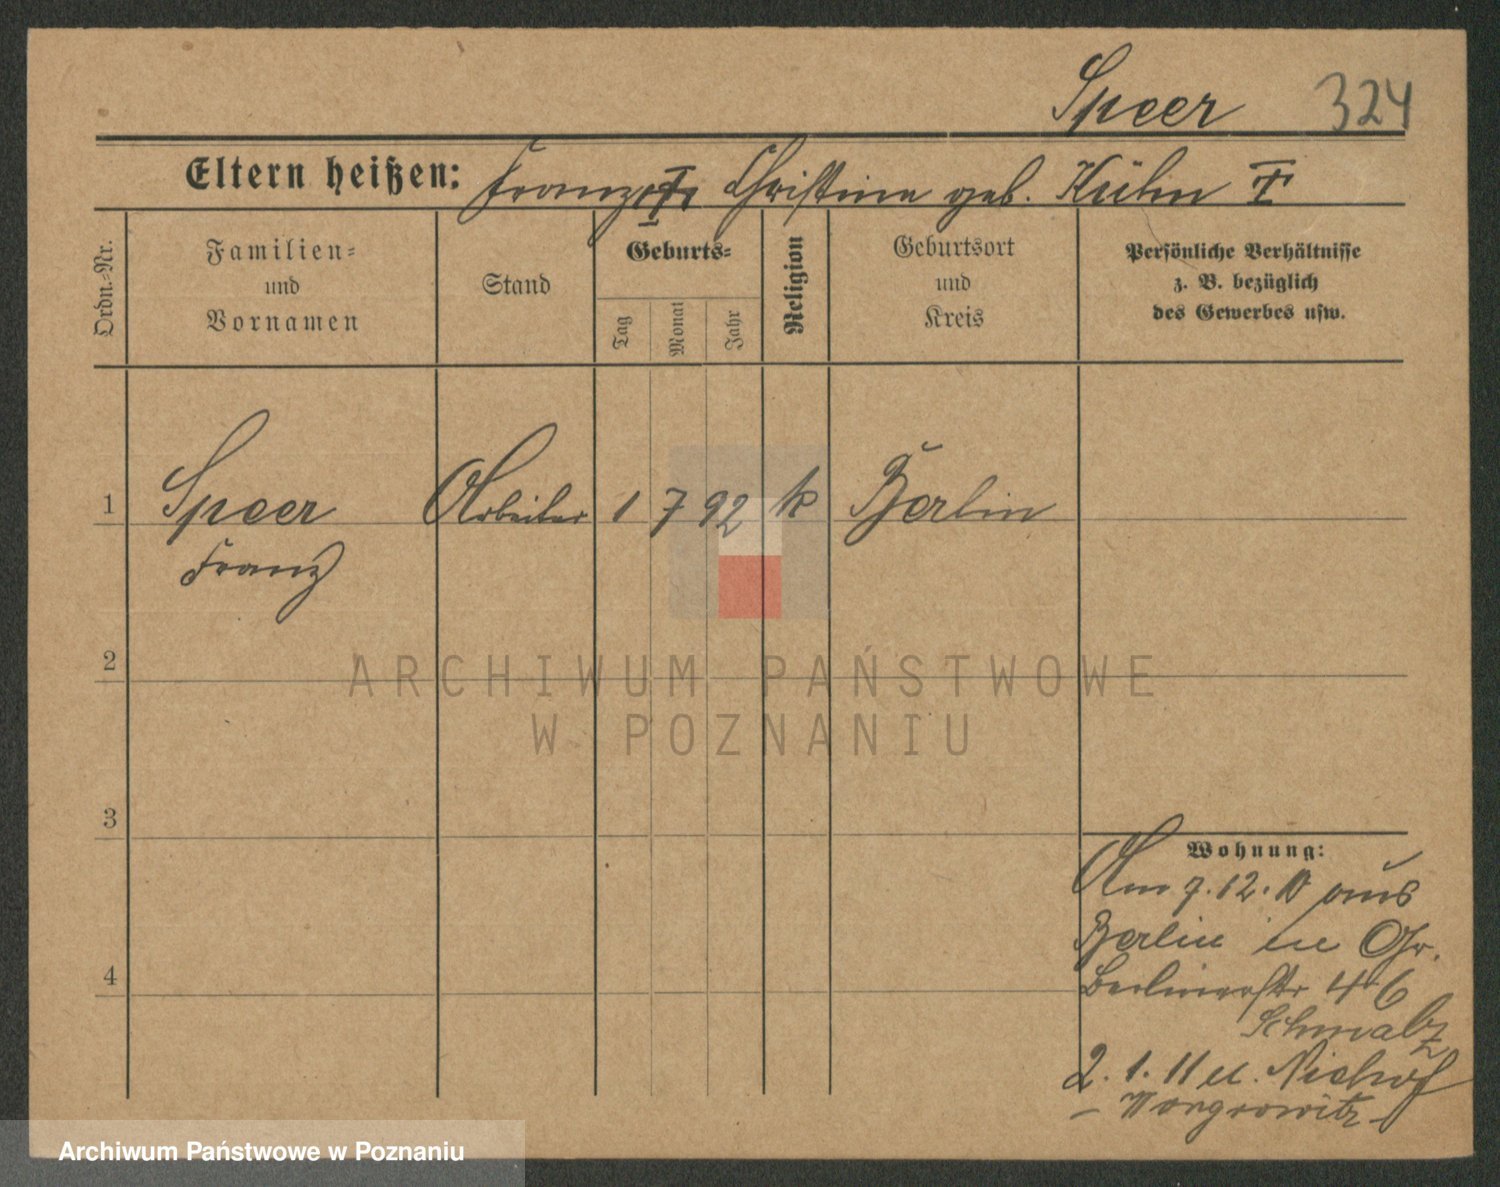 Speer 324
Eltern heißen: Franz Christine geb. Kühn
Ordn.-Nr.
Familien-
und
Vornamen
Stand
Geburts-
Tag
Monat
Jahr
Religion
Geburtsort
und
Kreis
Persönliche Verhältnisse
z. B. bezüglich
des Gewerbes usw.
1 Speer Arbeiter 1 7 92 k Berlin
Franz
2
3
4
Wohnung:
Am 7.12.10 aus
Berlin in Gr.
Berlinerstr 46
Schmalz
2.1.11 n.
ARCHIWUM PAŃSTWOWE
W POZNANIU
Archiwum Państwowe w Poznaniu